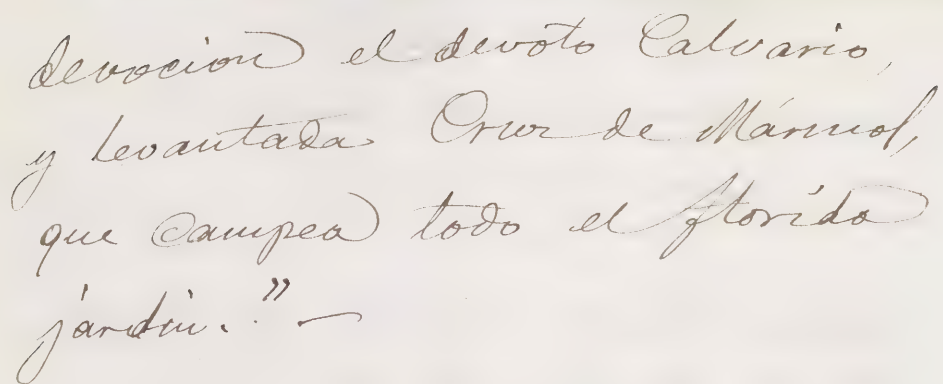 devocion el devoto Calvario,
y levantada Cruz de Mármol,
que campea todo el florido
jardin."—